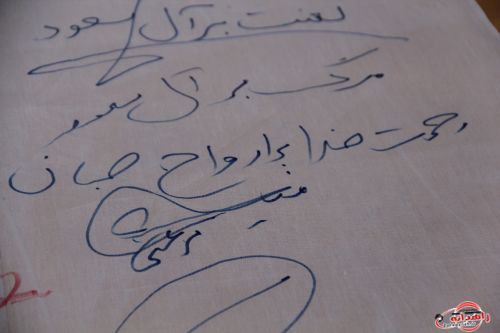 لعنت بر آل سعود
مرگ بر آل سعود
رحمت خدا بر ارواح
راهدانه